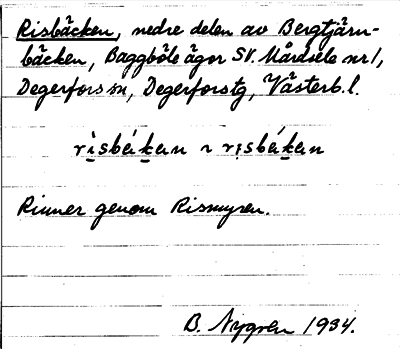 Risbäcken, nedre delen av Bergtjärn-
bäcken, Baggböle ägor SV. Mårdsele nr 1,
Degerfors sn, Degerfors tg, Västerb. l.
rìsbék̯en ~ risbék̯en
Rinner genom Rismyren.
B. Nygren 1934.